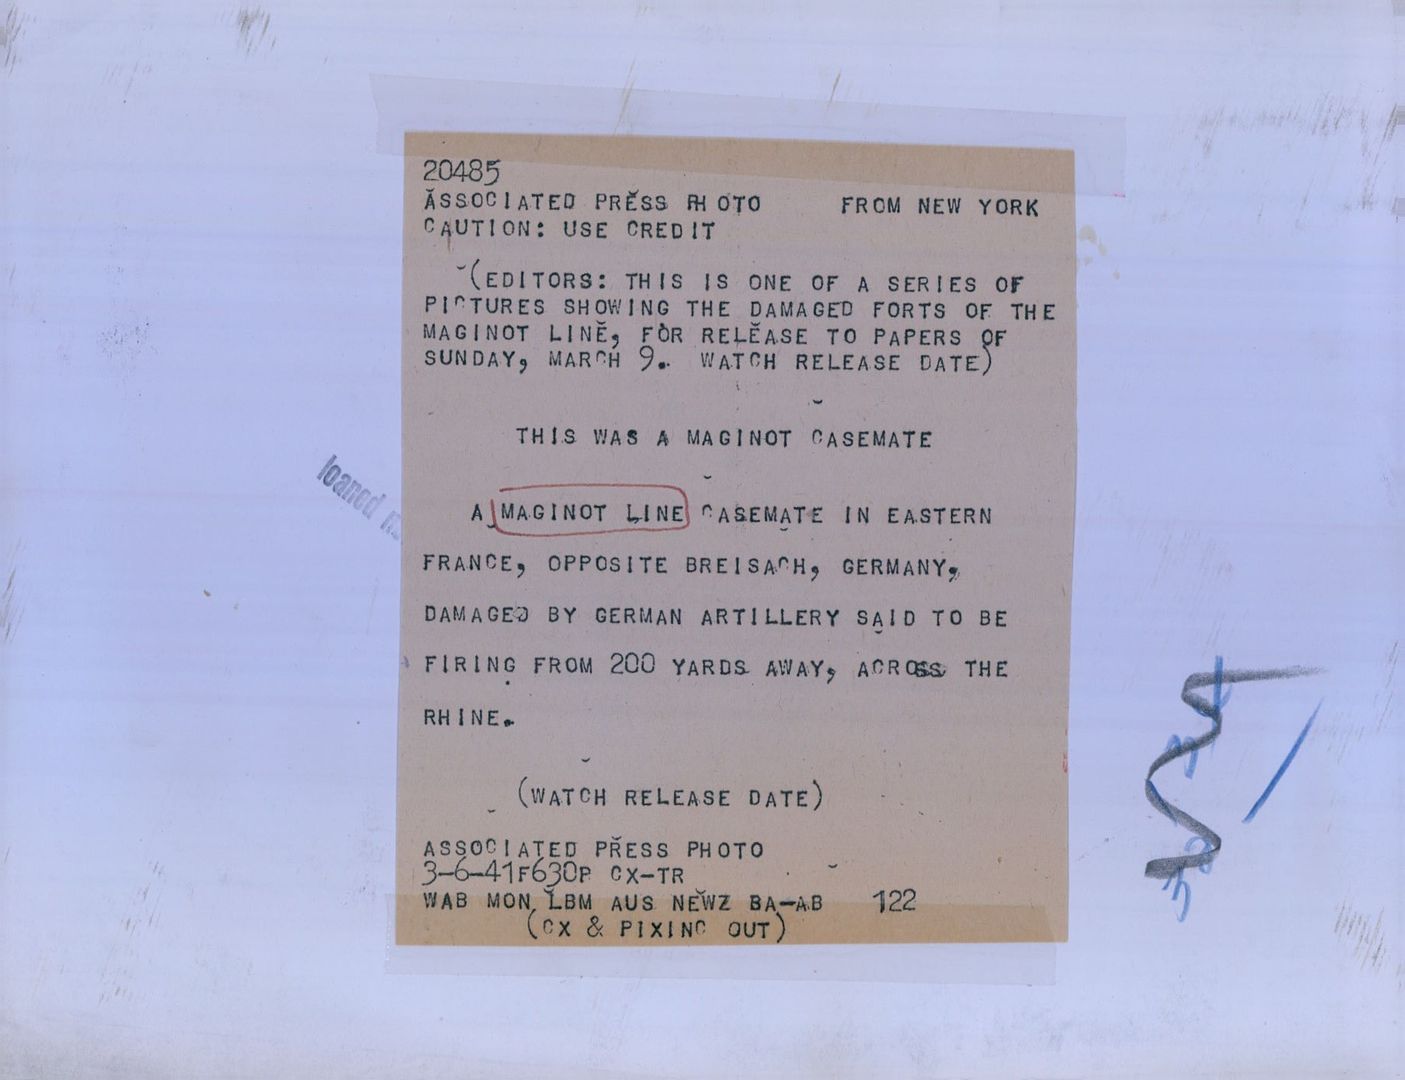 20485
ASSOCIATED PRESS PHOTO FROM NEW YORK
CAUTION: USE CREDIT
(EDITORS: THIS IS ONE OF A SERIES OF
PICTURES SHOWING THE DAMAGED FORTS OF THE
MAGINOT LINE, FOR RELEASE TO PAPERS OF
SUNDAY, MARCH 9. WATCH RELEASE DATE)
THIS WAS A MAGINOT CASEMATE
A MAGINOT LINE CASEMATE IN EASTERN
FRANCE, OPPOSITE BREISACH, GERMANY,
DAMAGED BY GERMAN ARTILLERY SAID TO BE
FIRING FROM 200 YARDS AWAY, ACROSS THE
RHINE.
(WATCH RELEASE DATE)
ASSOCIATED PRESS PHOTO
3-6-41F630P CX-TR
WAB MON LBM AUS NEWZ BA-AB 122
(CX & PIXINC OUT)
loaned